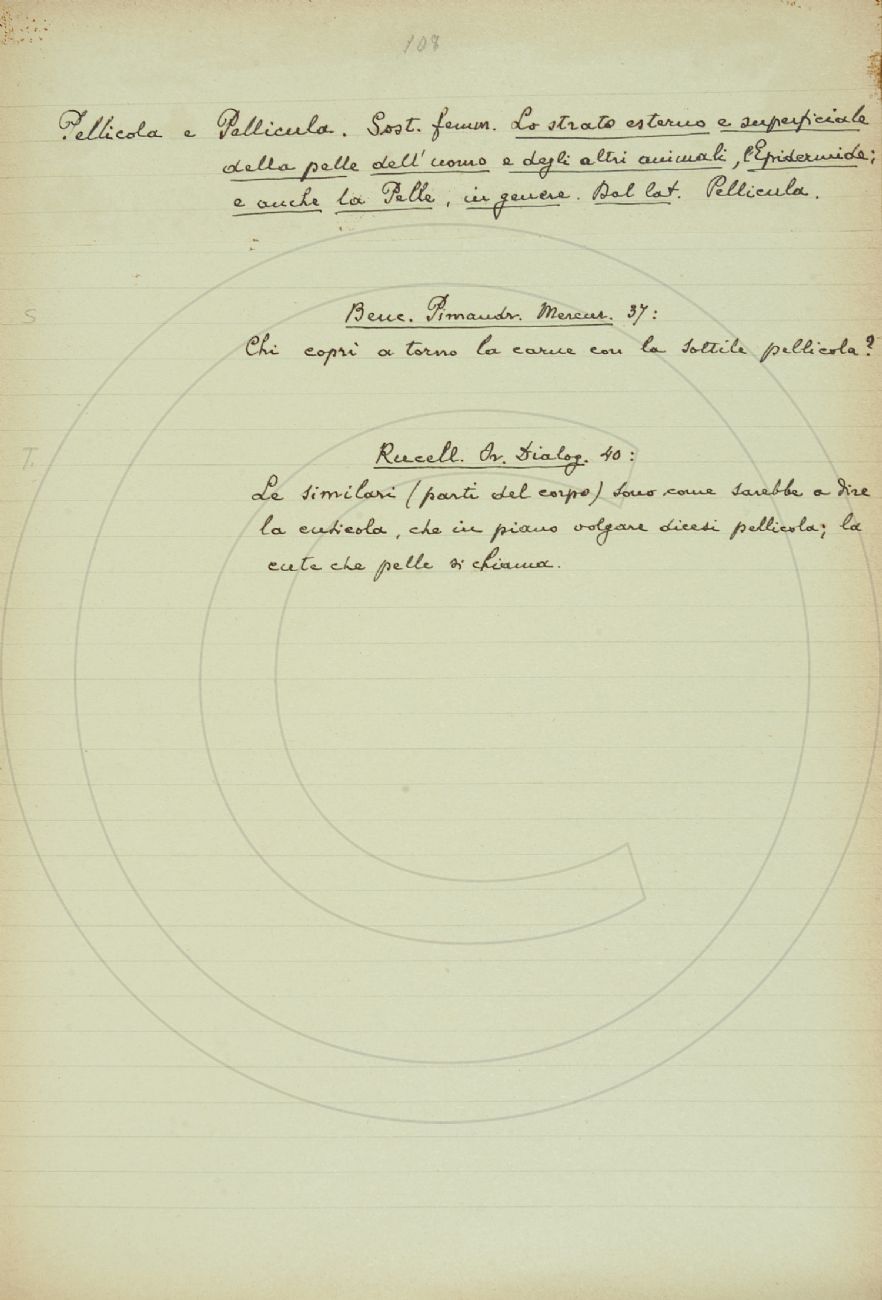 108
Pellicola e Pellicula. Sost. femm. Lo strato esterno e superficiale
della pelle dell'uomo e degli altri animali, l'Epidermide;
e anche la Pelle, in genere. Dal lat. Pellicula.
S
Benc. Pimandr. Mercur. 37:
Chi coprì a torno la carne con la sottile pellicola?
T.
Rucell. Or. Dialog. 40:
Le similari (parti del corpo) sono come sarebbe a dire
la cuticola, che in piano volgare dicesi pellicola; la
cute che pelle si chiama.